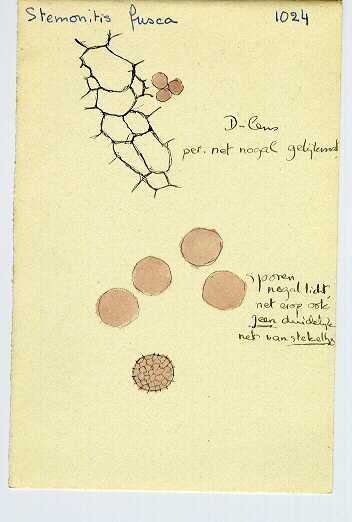 Stemonitis fusca 1024
D-lens
per. net nogal gelijkmat
sporen
nogal licht,
net erop ook
geen duidelijk
net van stekeltjes